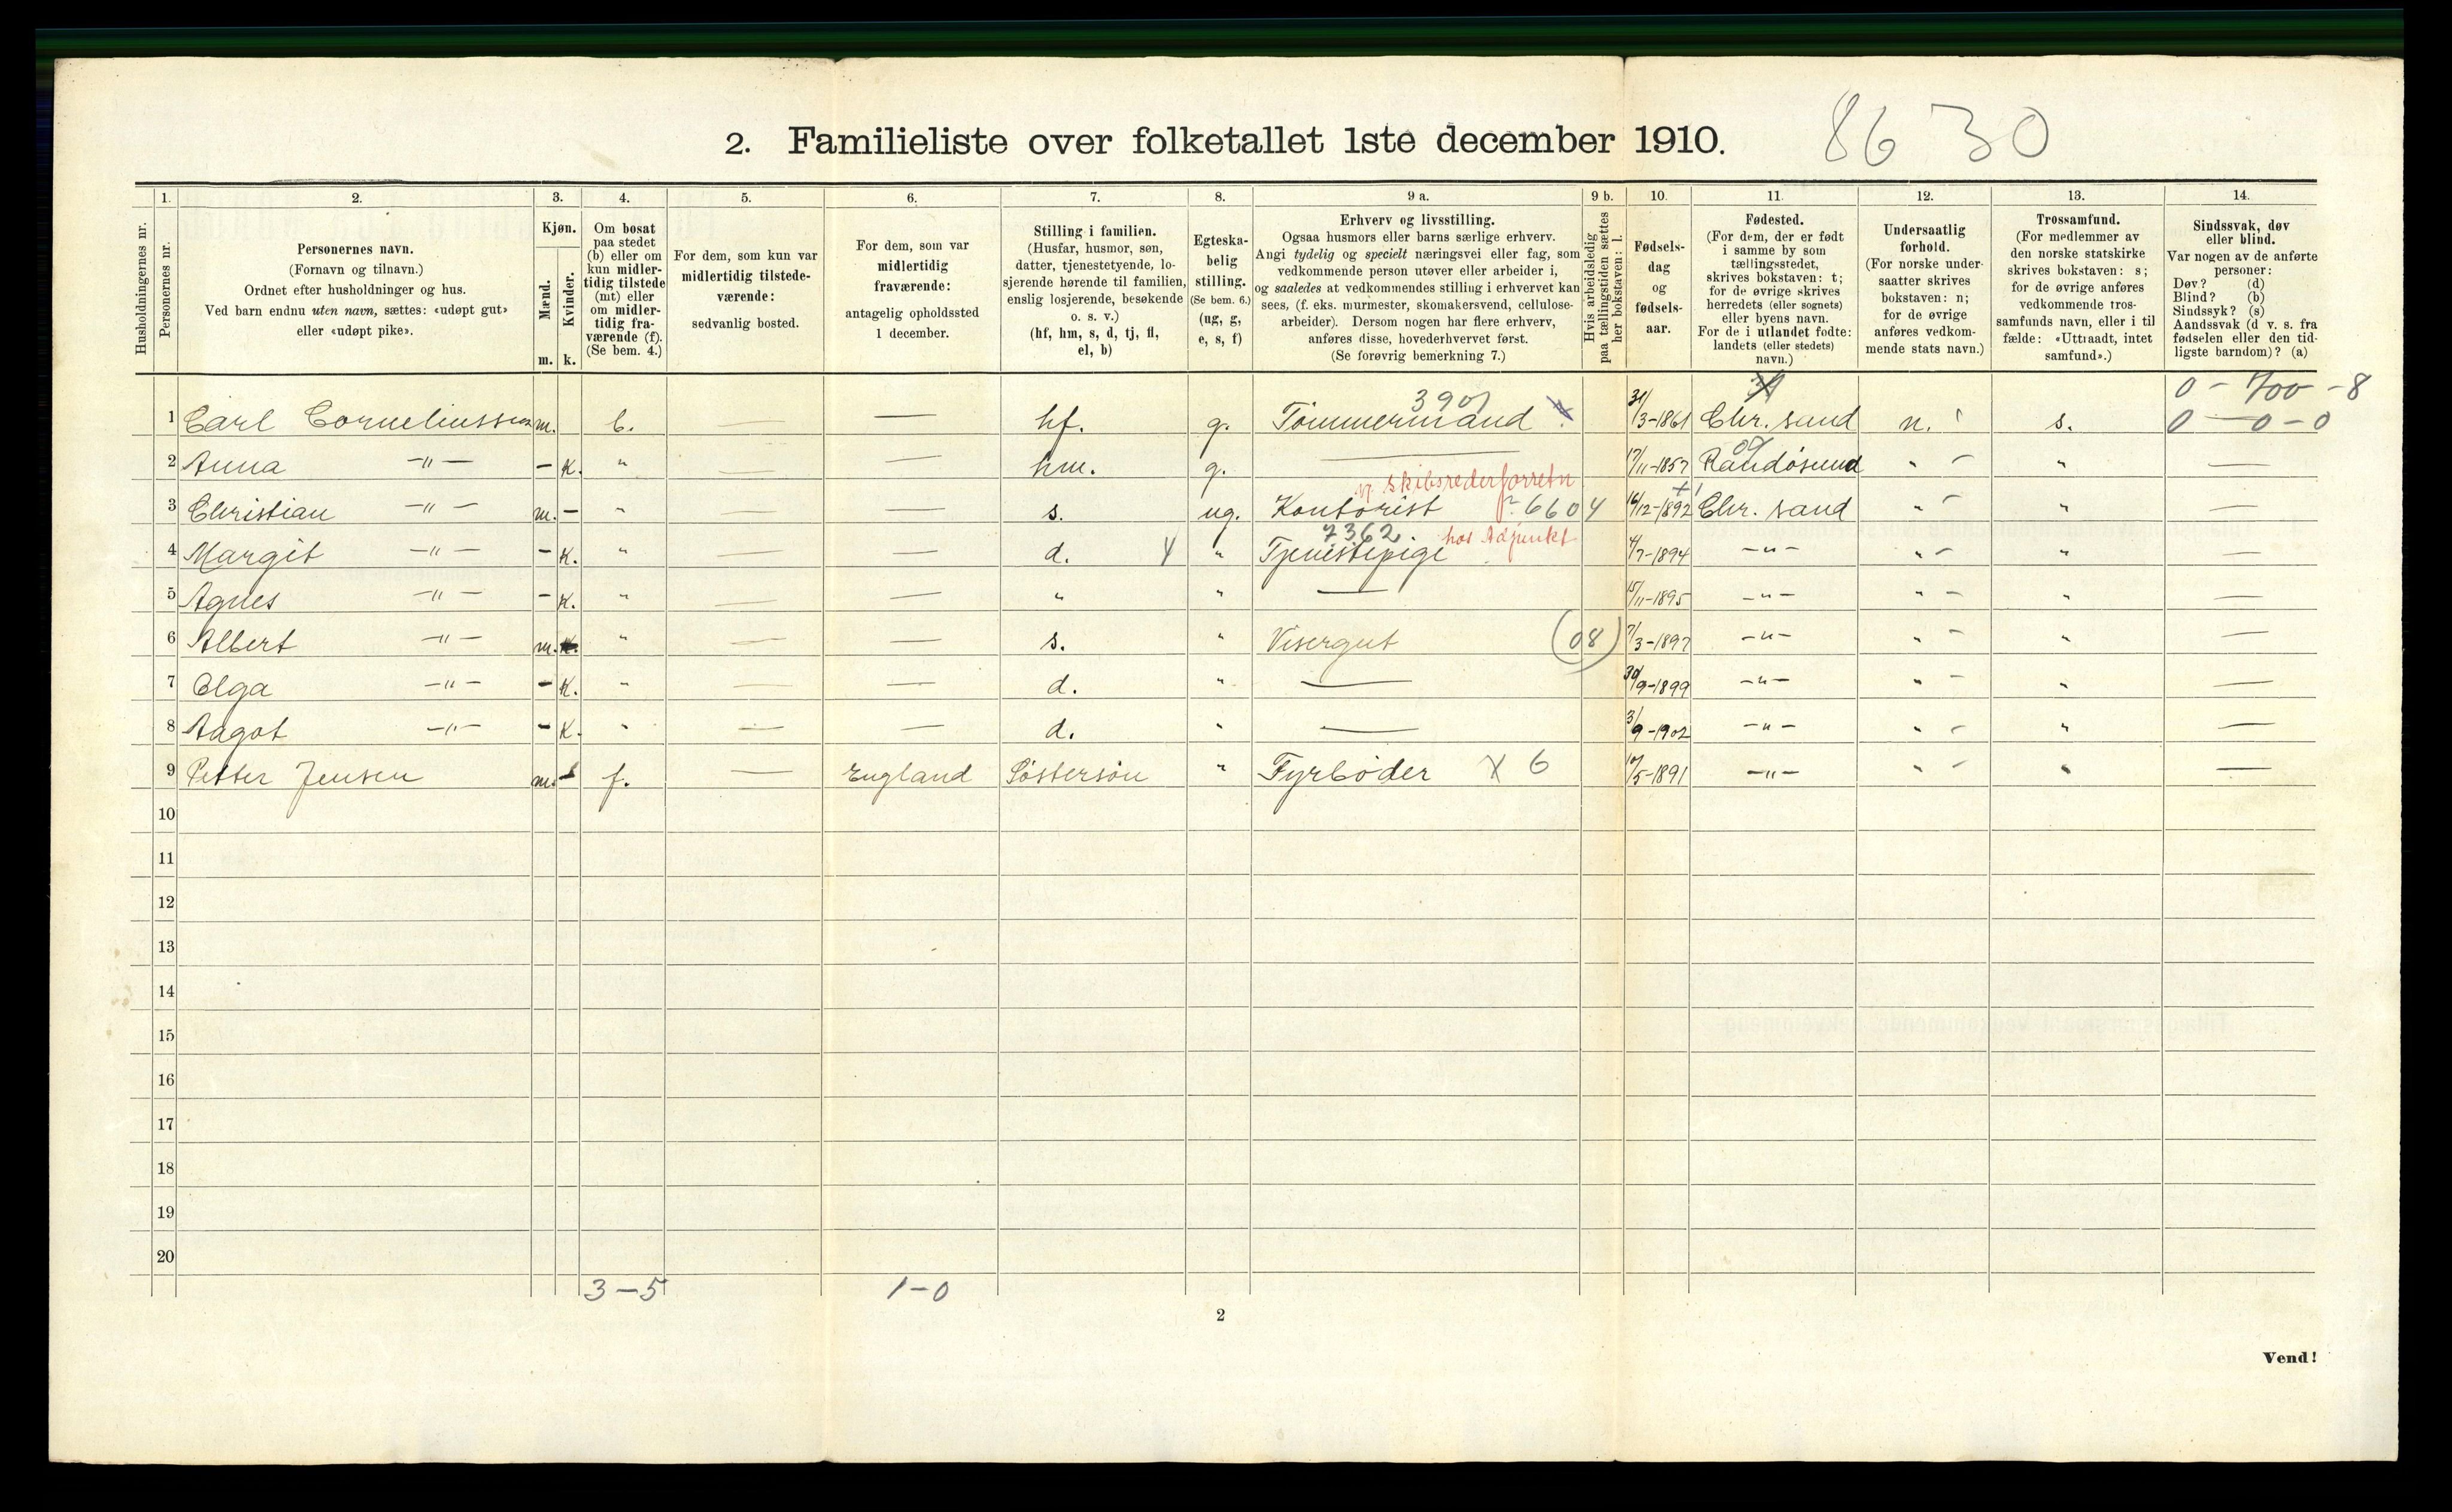 86 30
2. Familieliste over folketallet 1ste december 1910.
Husholdningernes nr.
1. Personernes nr.
2.
Personernes navn.
(Fornavn og tilnavn.)
Ordnet efter husholdninger og hus.
Ved barn endnu uten navn, sættes: «udøpt gut»
eller «udøpt pike».
3.
Kjøn.
Mænd. m.
Kvinder. k.
4.
Om bosat
paa stedet
(b) eller om
kun midler-
tidig tilstede
(mt) eller
om midler-
tidig fra-
værende (f).
(Se bem. 4.)
5.
For dem, som kun var
midlertidig tilstede-
værende:
sedvanlig bosted.
6.
For dem, som var
midlertidig
fraværende:
antagelig opholdssted
1 december.
7.
Stilling i familien.
(Husfar, husmor, søn,
datter, tjenestetyende, lo-
sjerende hørende til familien,
enslig losjerende, besøkende
o. s. v.)
(hf, hm, s, d, tj, fl,
el, b)
8.
Egteska-
belig
stilling.
(Se bem. 6.)
(ug, g,
e, s, f)
9 a.
Erhverv og livsstilling.
Ogsaa husmors eller barns særlige erhverv.
Angi tydelig og specielt næringsvei eller fag, som
vedkommende person utøver eller arbeider i,
og saaledes at vedkommendes stilling i erhvervet kan
sees, (f. eks. murmester, skomakersvend, cellulose-
arbeider). Dersom nogen har flere erhverv,
anføres disse, hovederhvervet først.
(Se forøvrig bemerkning 7.)
9 b.
Hvis arbeidsledig
paa tællingstiden sættes
her bokstaven: l.
10.
Fødsels-
dag
og
fødsels-
aar.
11.
Fødested.
(For dem, der er født
i samme by som
tællingsstedet,
skrives bokstaven: t;
for de øvrige skrives
herredets (eller sognets)
eller byens navn.
For de i utlandet fødte:
landets (eller stedets)
navn.)
12.
Undersaatlig
forhold.
(For norske under-
saatter skrives
bokstaven: n;
for de øvrige
anføres vedkom-
mende stats navn.)
13.
Trossamfund.
(For medlemmer av
den norske statskirke
skrives bokstaven: s;
for de øvrige anføres
vedkommende tros-
samfunds navn, eller i til-
fælde: «Uttraadt, intet
samfund».)
14.
Sindssvak, døv
eller blind.
Var nogen av de anførte
personer:
Døv? (d)
Blind? (b)
Sindssyk? (s)
Aandssvak (d v. s. fra
fødselen eller den tid-
ligste barndom)? (a)
3901 0 - 700 - 8
1 Carl Corneliussen m. b. — — hf. g. Tømmermand 31/3-1861 Chr. sand n. s. 0 - 0 - 0
2 Anna -"- - k. " — — hm. g. — 17/11-1857 Randøsund " - " —
skibsrederforretn
3 Christian -"- m. - " — — s. ug. Kontorist 6604 16/12-1892 Chr. sand " - "
7362 hos Adjunkt
4 Margit -"- - k. " — — d. 4 " Tjenestepige 4/7-1894 -"- " - " —
5 Agnes -"- - k. " — — " " — 15/11-1895 -"- " - " —
6 Albert -"- m. " — — s. " Visergut (08) 7/3-1897 -"- " - " —
7 Olga -"- - k. " — — d. " — 30/9-1899 -"- " - " —
8 Aagot -"- - k. " — — d. " — 3/9-1902 -"- " - " —
9 Petter Jensen m. - f. — England Søstersøn " Fyrbøder X 6 17/5-1891 -"- " - " —
10
11
12
13
14
15
16
17
18
19
20
3-5 1-0
2
Vend!